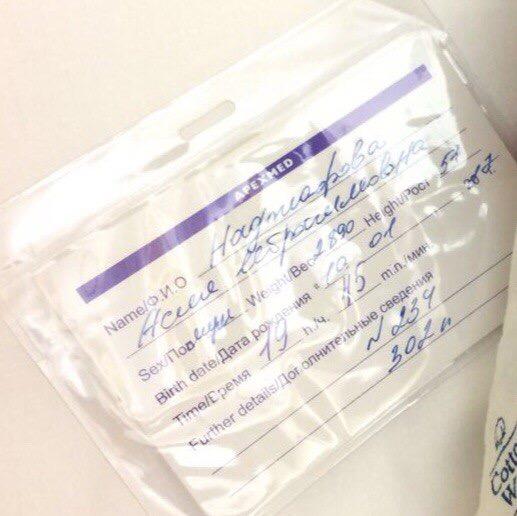 APEXMED
Name/Ф.И.О Наджафова
Асия
Sex/Пол жен Weight/Вес 2890 Height/Рост 51
Birth date/Дата рождения "10 01
Time/Время 19 h/ч. 15 m.n./мин
Further details/Дополнительные сведения
N 234
302 п
Cotto